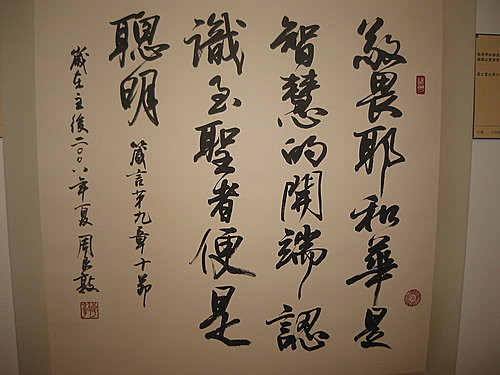 敬畏耶和華是
智慧的開端認
識至聖者便是
聰明
箴言第九章十節
歲在主後二〇〇八年夏周良敦